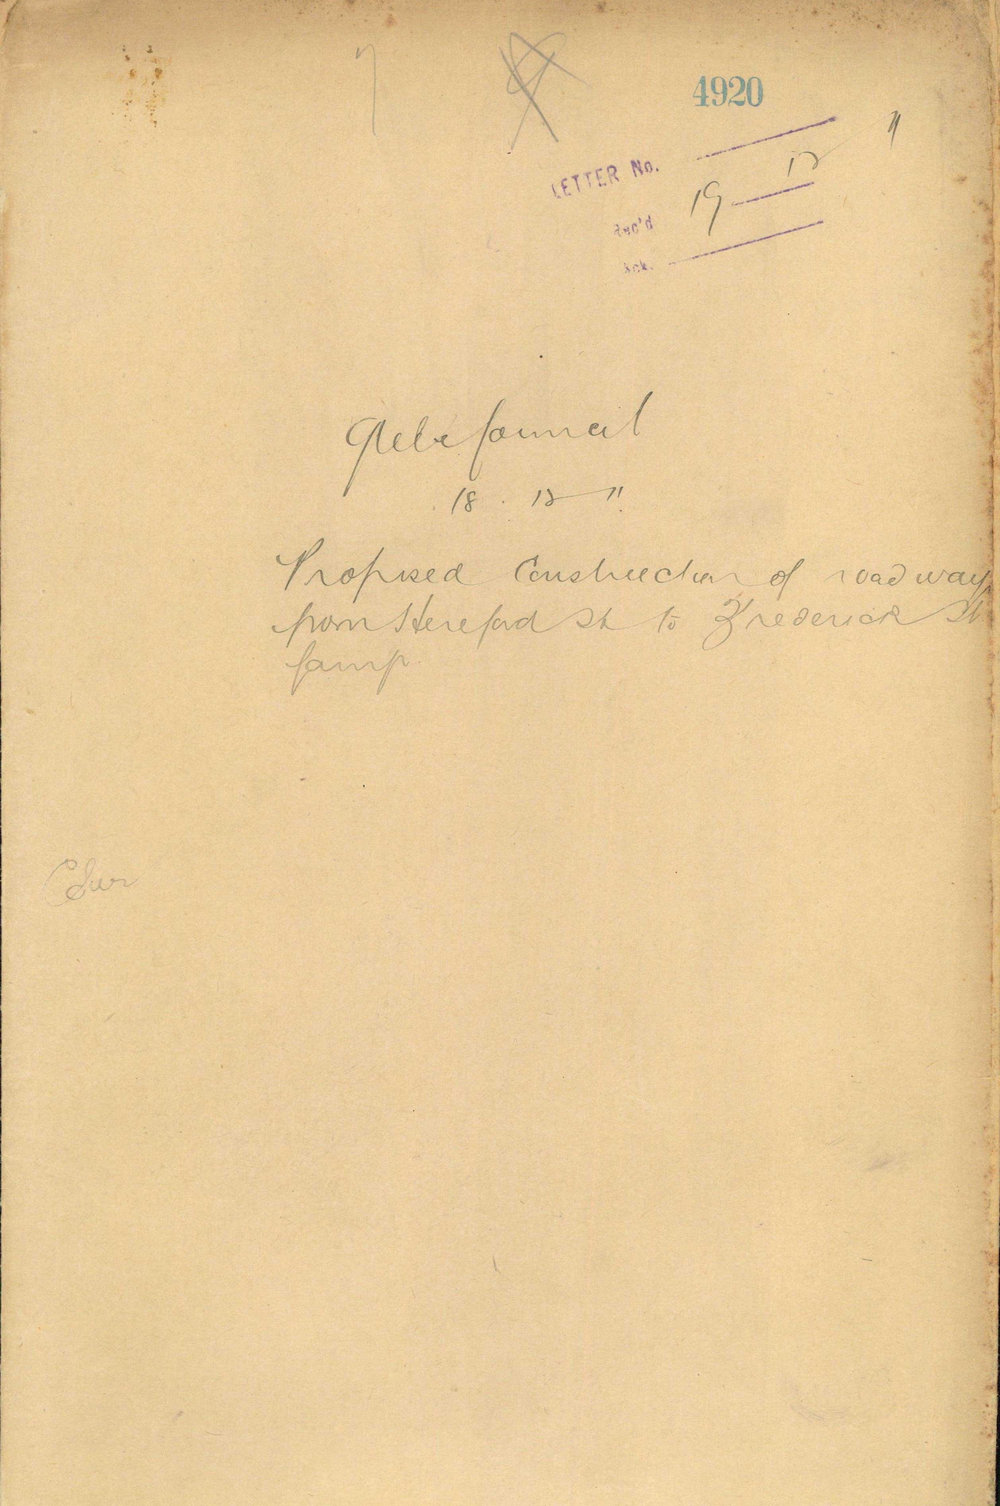 7
4920
LETTER No.
Rec'd 19 - 12 - 11
Ack.
Glebe Council
18. 12 - 11.
Proposed Construction of roadway
from Hereford St to Frederick St
Camp.